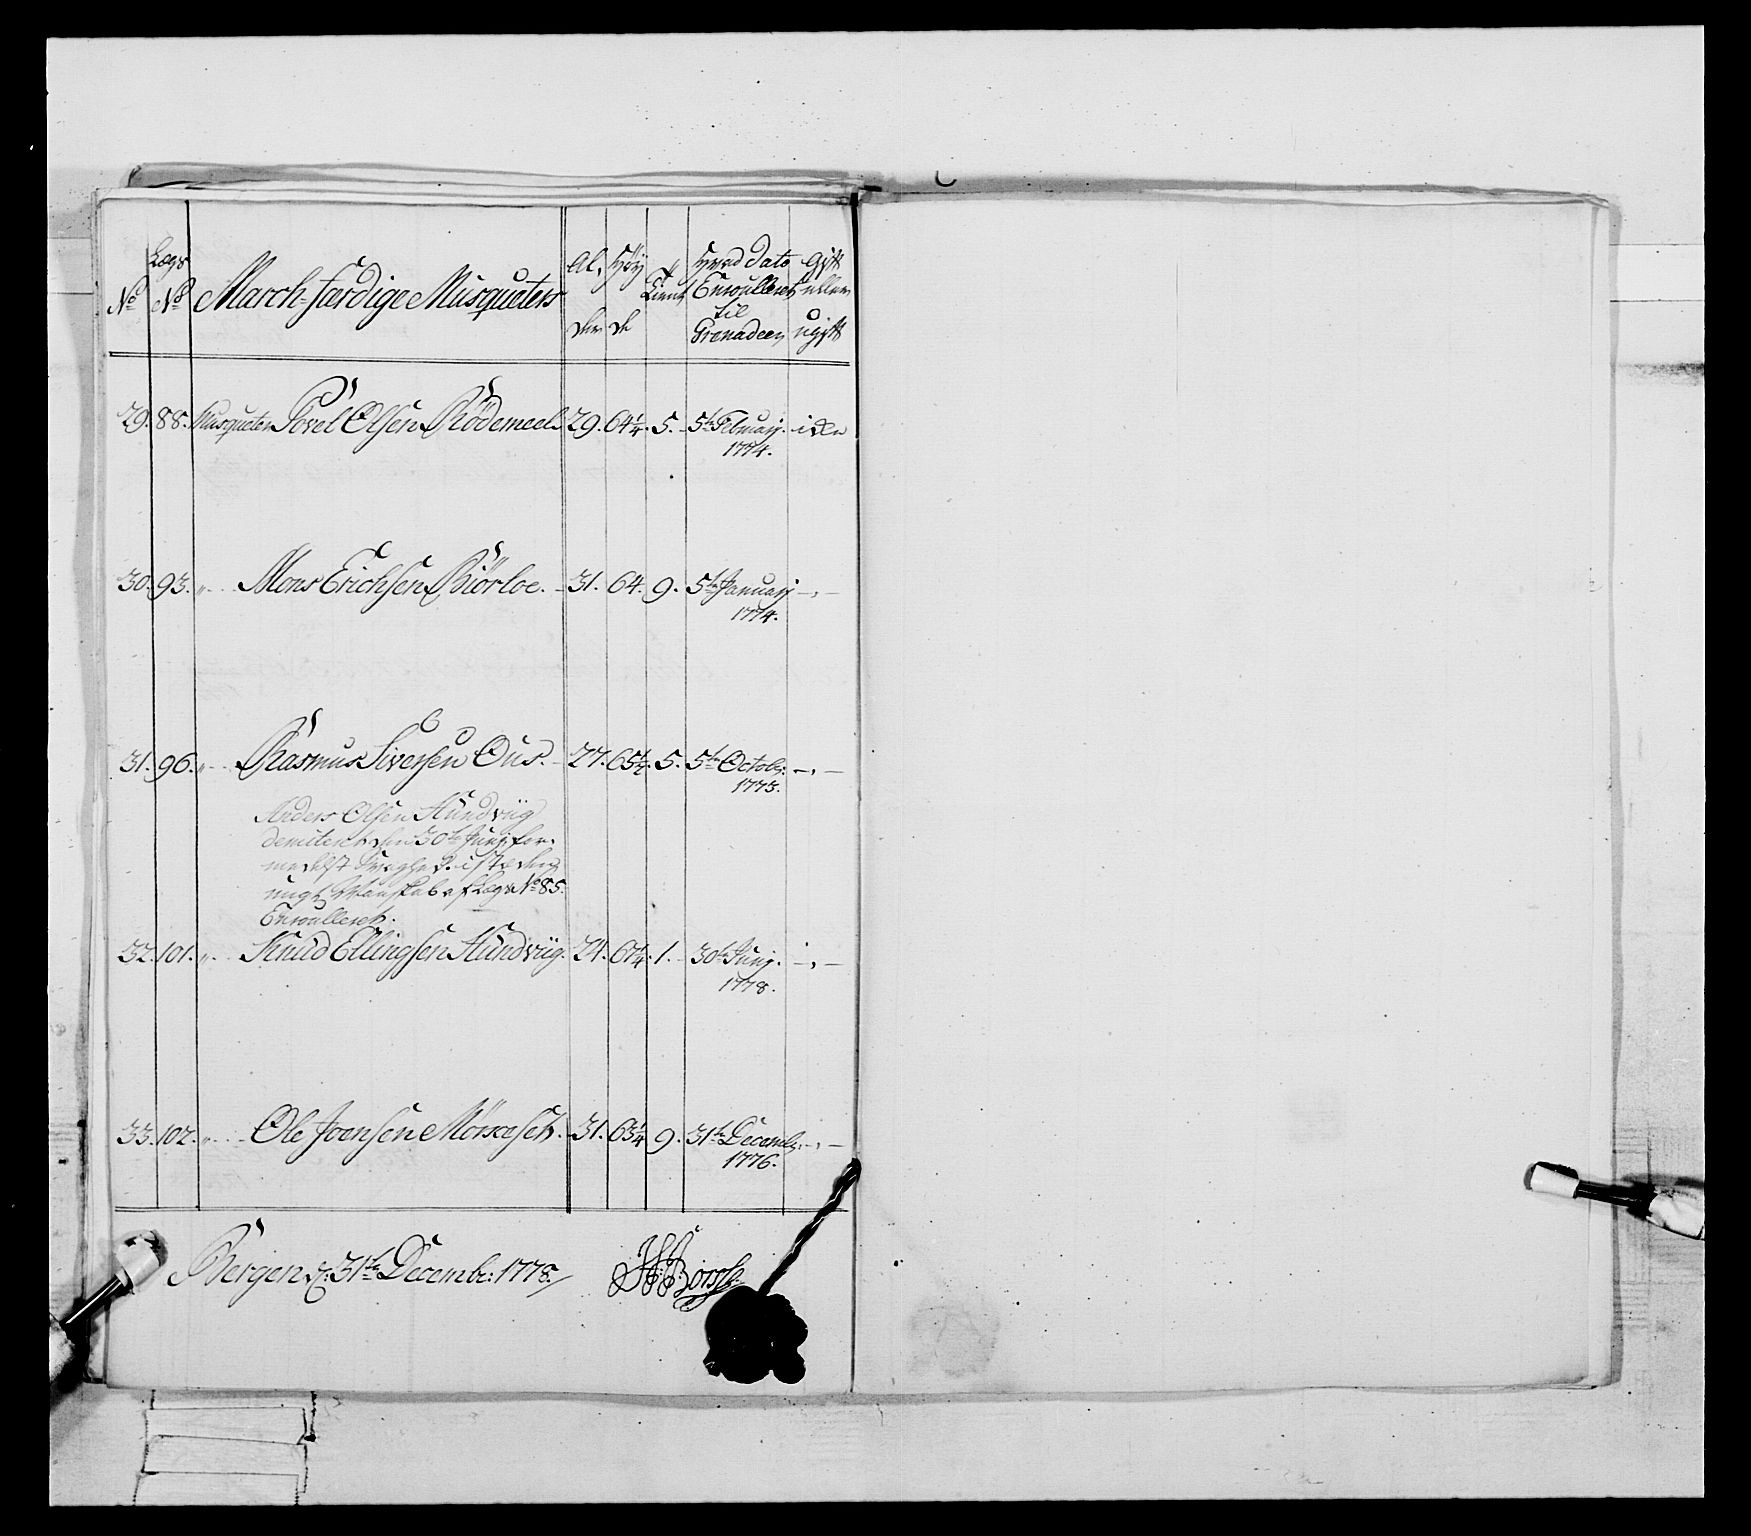 No Lægs No March-færdige Musqueters Alder Høyde Tient Hvad Dato Enroulleret til Grenadeer Gift eller ugift
29. 88. Musqueter Povel Olsen Rödemeel 29. 64 1/4. 5. 5te Februarj. iden
1774.
30. 93. " Mons Erichsen Biörloe. 31. 64. 9. 5te Januarj - " -
1774.
31. 96. " Rasmus Siversen Ous. 27. 65 1/2. 5. 5te Octobr: - " -
1773.
Anders Olsen Hundviig
demiteret den 30te Junj for-
medelst Svaghed. i stæden
ungt Mandskab af Lægs No 85.
Enroulleret.
32. 101. " Knud Ellingsen Hundviig. 24. 61 1/4. 1. 30te Junj. - " -
1778.
33. 102. " Ole Joensen Mörceset. 31. 63 1/4. 9. 31te Decembr. - " -
1776.
Bergen d: 31te Decembr: 1778.